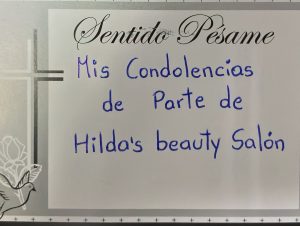 Sentido Pésame
Mis Condolencias
de Parte de
Hilda's beauty Salón